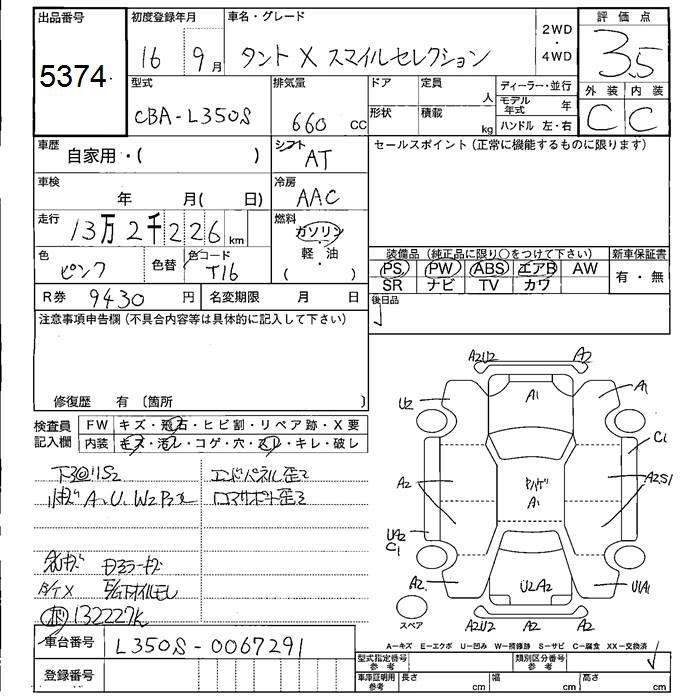 出品番号
5374
初度登録年月
16 9月
車名・グレード
タント X スマイルセレクション
2WD
・
4WD
評価点
3.5
外装 内装
C C
型式
CBA-L350S
排気量
660 cc
ドア
定員
人
形状
積載
kg
ディーラー・並行
モデル年式 年
ハンドル 左・右
車歴
自家用・( )
シフト
AT
セールスポイント(正常に機能するものに限ります)
車検
年 月( 日)
冷房
AAC
走行
13万2千226km
燃料
ガソリン
軽・油
( )
色
ピンク
色替
色コード
T16
装備品(純正品に限り○をつけて下さい)
新車保証書
PS PW ABS エアB AW
SR ナビ TV カワ
有・無
R券 9430円
名変期限 月 日
後日品
注意事項申告欄(不具合内容等は具体的に記入して下さい)
修復歴 有〔箇所 〕
検査員
記入欄
FW キズ・飛石・ヒビ割・リペア跡・X要
内装 キズ・汚レ・コゲ・穴・スレ・キレ・破レ
エンドパネル歪2
コアサポート歪3
A、U、W2
132227K
A2U2
A2
U2
A1
A1
C1
A2
A1
A2S1
UA2
C1
A2
U2A2
U1A1
A2U2
A2
A2
スペア
A-キズ E-エクボ U-凹み W-補修跡 S-サビ C-腐食 XX-交換済
車台番号
L350S-0067291
登録番号
型式指定番号
参考
類別区分番号
参考
車庫証明用
参考
長さ cm
幅 cm
高さ cm